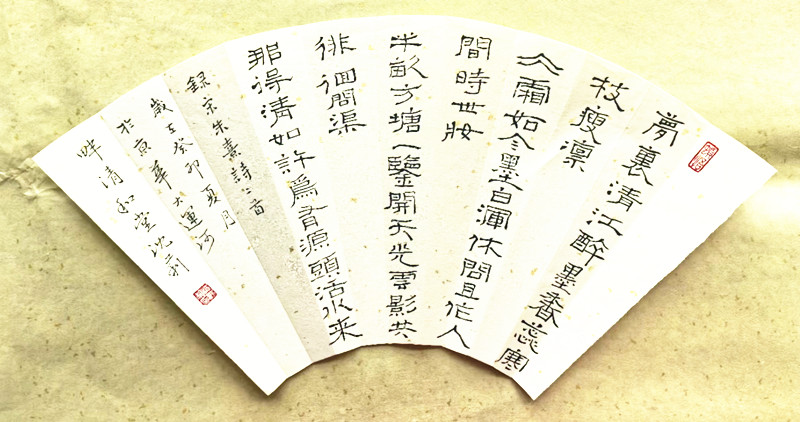 夢裏清江醉墨香蕊寒
枝瘦凛
仌霜如今墨白渾休問且作人
間時世妝
半畝方塘一鑒開天光雲影共
徘徊問渠
那得清如許爲有源頭活水来
録宋朱熹詩二首
歲在癸卯夏月
於京華大運河
畔清和堂沈